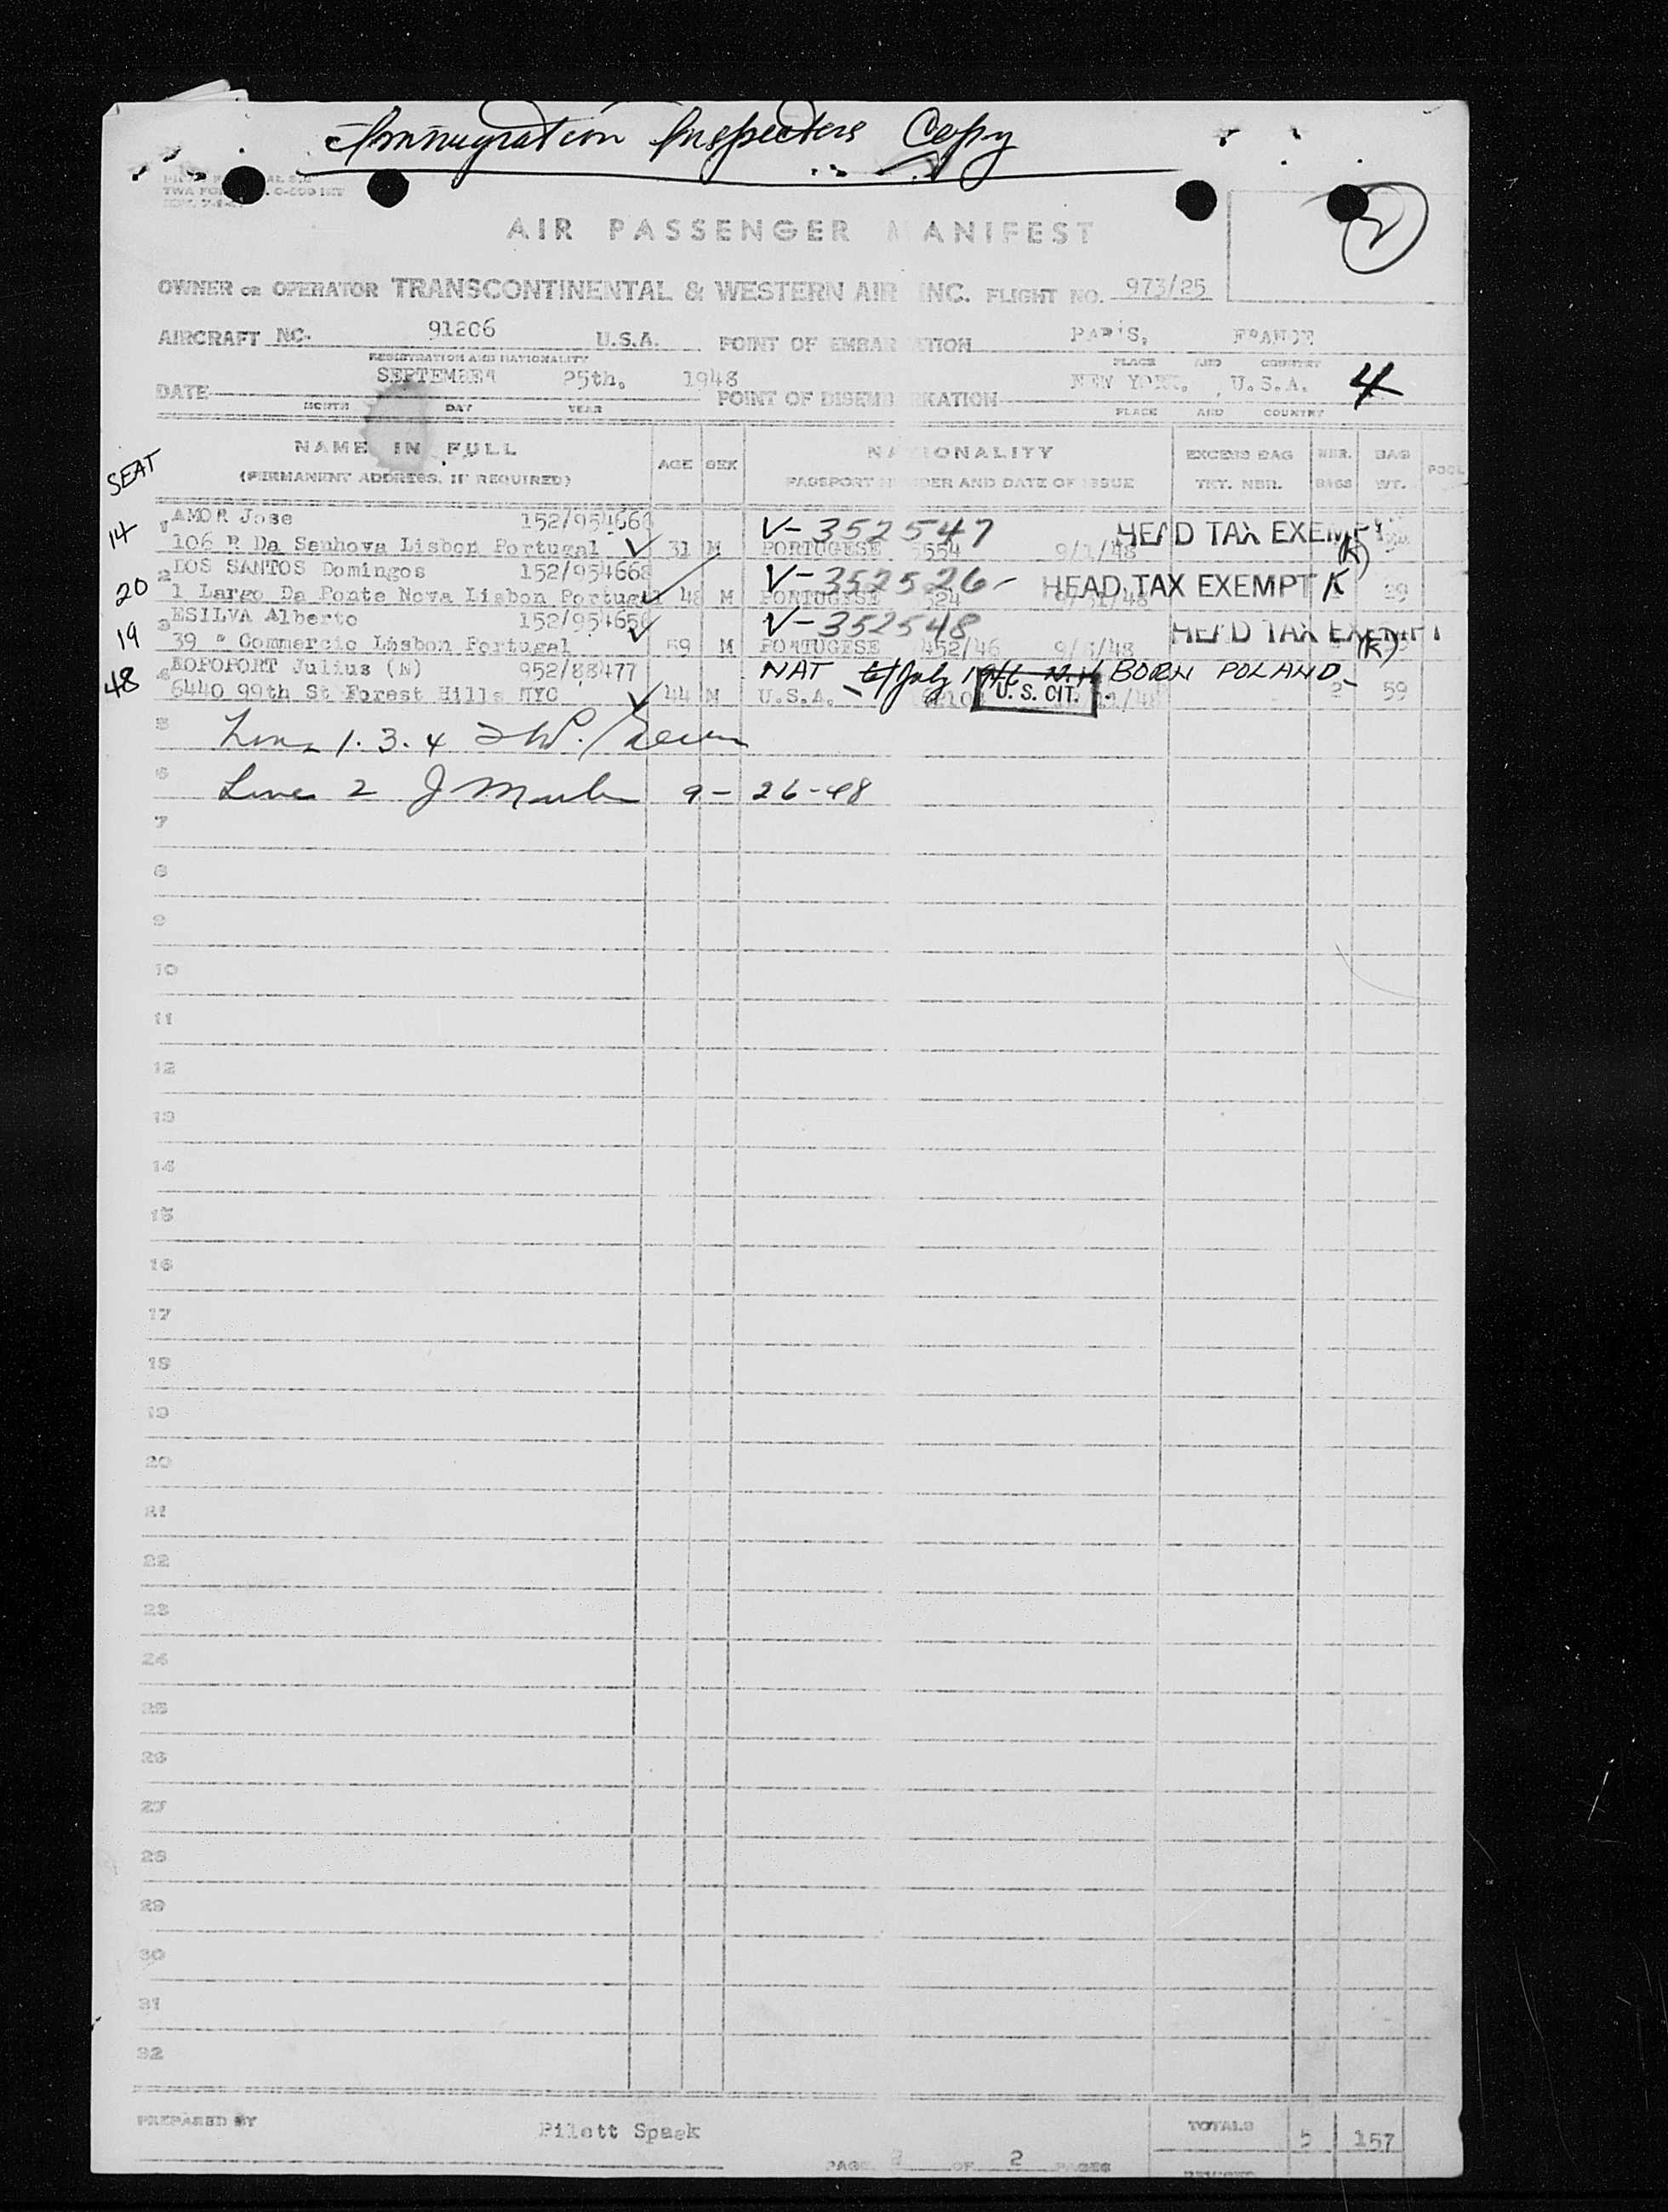 Immigration Inspectors Copy
TWA
2
AIR PASSENGER MANIFEST
OWNER OR OPERATOR TRANSCONTINENTAL & WESTERN AIR INC. FLIGHT NO. 973/25
AIRCRAFT NC. 91206 U.S.A. POINT OF EMBARKATION PARIS, FRANCE
REGISTRATION AND NATIONALITY PLACE AND COUNTRY
DATE SEPTEMBER 25th. 1948 POINT OF DISEMBARKATION NEW YORK, U.S.A. 4
MONTH DAY YEAR PLACE AND COUNTRY
SEAT NAME IN FULL AGE SEX NATIONALITY EXCESS BAG NBR. BAG POOL
(PERMANENT ADDRESS, IF REQUIRED) PASSPORT NUMBER AND DATE OF ISSUE TKT. NBR. BAGS WT.
14 1 AMOR Jose V-352547 HEAD TAX EXEMPT
106 R Da Senhova Lisbon Portugal 31 M PORTUGESE 5554 9/1/48 (K)
20 2 DOS SANTOS Domingos 152/954668 V-352526- HEAD TAX EXEMPT K
1 Largo Da Ponte Nova Lisbon Portugal 48 M PORTUGESE
19 3 ESILVA Alberto V-352548 HEAD TAX EXEMPT
39 " Commercio Lisbon Portugal 59 M PORTUGESE 452/46 (K)
48 4 ROPOPORT Julius 952/88477 NAT BORN POLAND
6440 99th St Forest Hills NYC 44 M U.S.A. U. S. CIT. 2 59
5 1. 3. 4
6 Line 2 9-26-48
7
8
9
10
11
12
13
14
15
16
17
18
19
20
21
22
23
24
25
26
27
28
29
30
31
32
PREPARED BY Pilott Spaek TOTALS 5 157
PAGE OF 2 PAGES